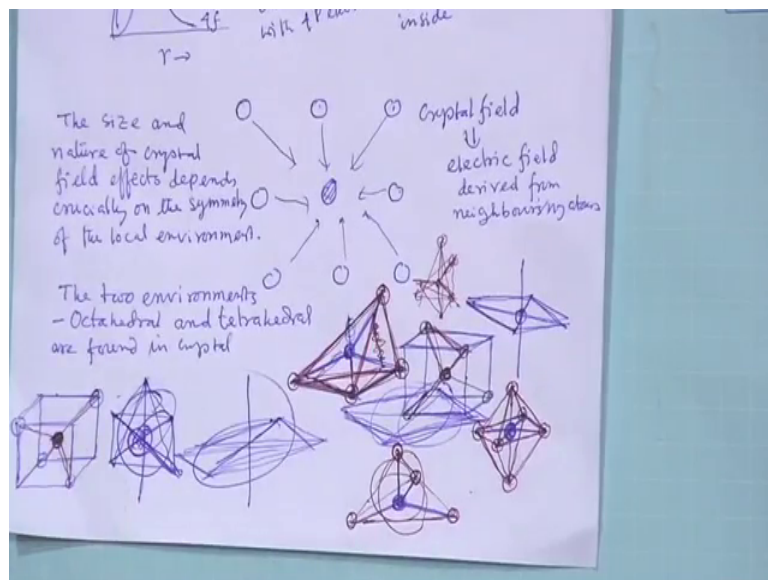 4f
with 4f
inside
r→
The size and
nature of crystal
field effects depends
crucially on the symmetry
of the local environment.
Crystal field
⇓
electric field
derived from
neighbouring atoms
The two environments
- Octahedral and tetrahedral
are found in crystal